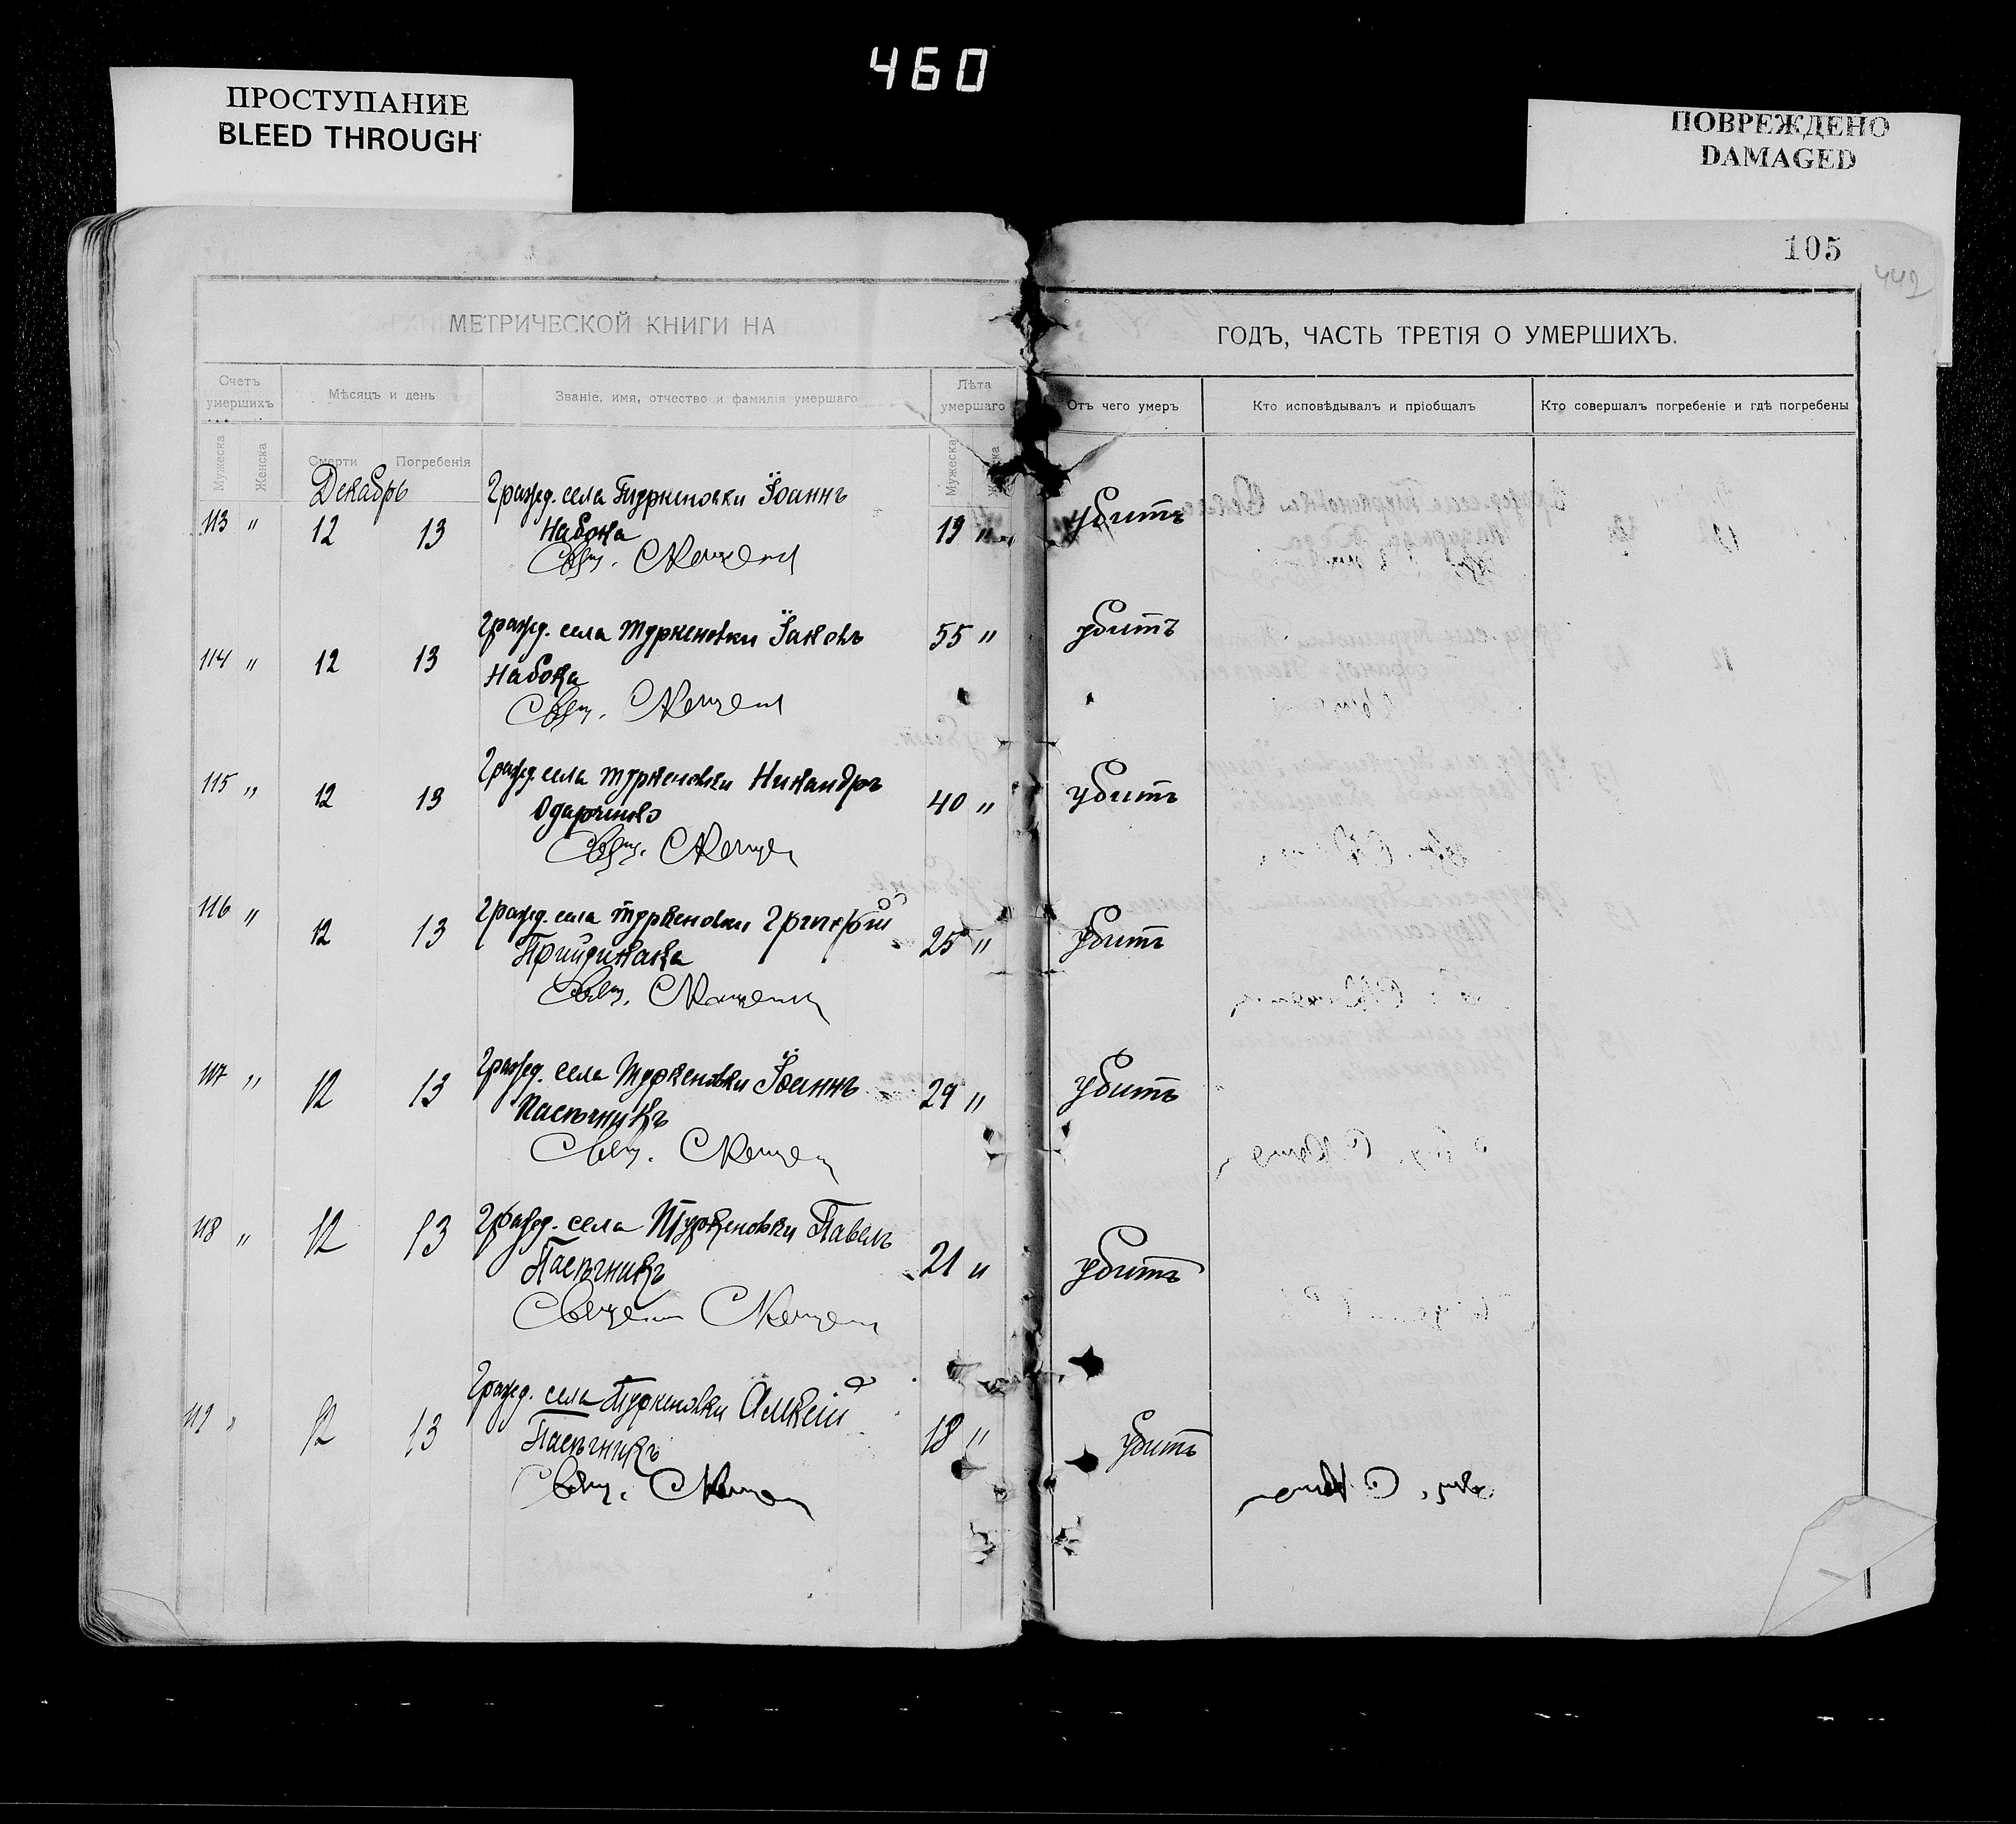 460
ПРОСТУПАНИЕ
BLEED THROUGH
ПОВРЕЖДЕНО
DAMAGED
105
442
МЕТРИЧЕСКОЙ КНИГИ НА
ГОДЪ, ЧАСТЬ ТРЕТІЯ О УМЕРШИХЪ.
Счетъ умершихъ
Мѣсяцъ и день
Званіе, имя, отчество и фамилія умершаго
Лѣта умершаго
Отъ чего умеръ
Кто исповѣдывалъ и пріобщалъ
Кто совершалъ погребеніе и гдѣ погребены
Мужеска
Женска
Смерти
Погребенія
Мужеска
Декабрь
Гражд. села Туркеновки Іоаннъ
113 " 12 13 Набока 19 " убитъ
Свящ.
Гражд. села Туркеновки Іаковъ 55 " убитъ
114 " 12 13 Набока
Свящ.
Гражд. села Туркеновки Никандръ
115 " 12 13 Одарченко 40 " убитъ
Свящ.
116 " Гражд. села Туркеновки Григорій
12 13 25 " убитъ
Свящ.
Гражд. села Туркеновки Іоаннъ
117 " 12 13 Пасѣчникъ 29 " убитъ
Свящ.
118 " 12 13 Гражд. села Туркеновки Павелъ
Пасѣчникъ 21 " убитъ
Гражд. села Туркеновки Алексій
119 " 12 13 Пасѣчникъ 18 " убитъ
Свящ.